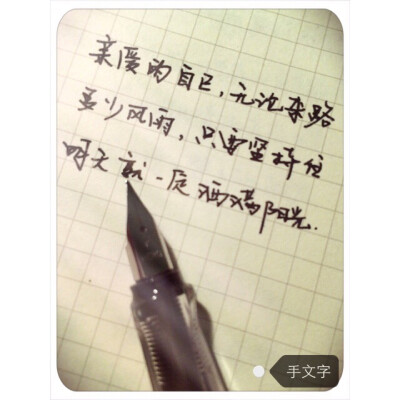 亲爱的自己，无论来路
多少风雨，只要坚持住
明天就一定洒满阳光.
手文字